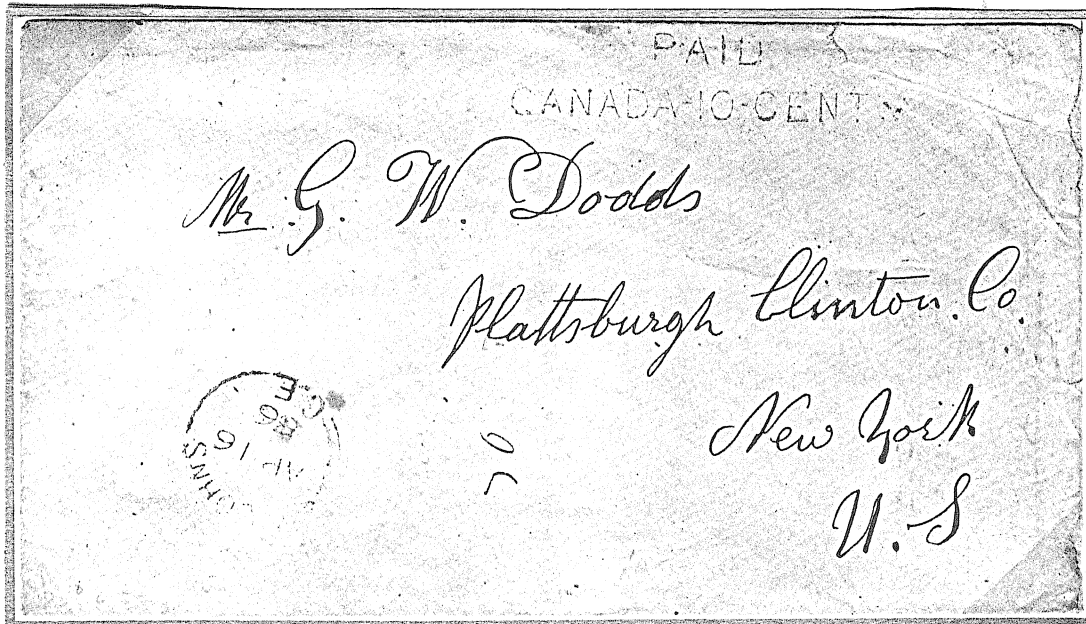 PAID
CANADA-10-CENTS
Mr. G. W. Dodds
Plattsburgh Clinton. Co.
New York
U. S
C.E
16
OHNS